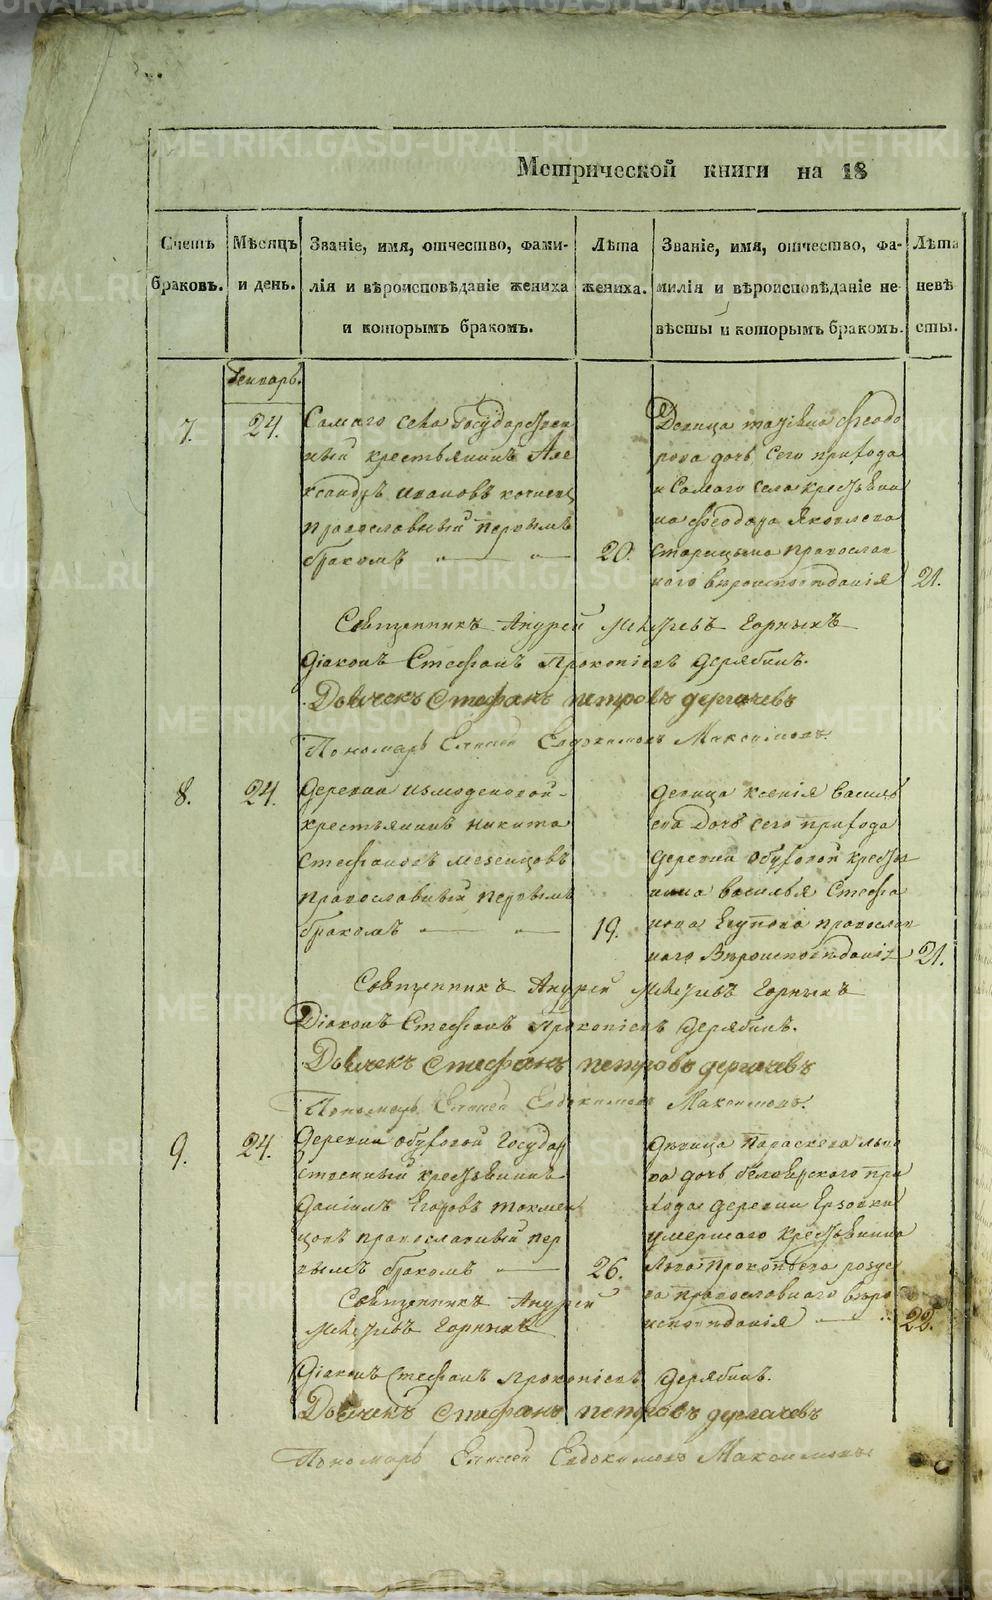 Метрической книги на 18
Счетъ браковъ.
Мѣсяцъ и день.
Званіе, имя, отчество, фами-
лія и вѣроисповѣданіе жениха
и которымъ бракомъ.
Лѣта жениха.
Званіе, имя, отчество, фа-
милія и вѣроисповѣданіе не-
вѣсты и которымъ бракомъ.
Лѣта невѣ
сты.
Генварь.
7.
24.
Самаго села Государствен
ный крестьянинъ Але
ксандръ Ивановъ
православный первымъ
бракомъ
20.
Девица Феодо
рова дочь сего прихода
и Самаго села крестьяни
на Феодора Яковлева
Старицына православ
наго вѣроисповѣданія
21.
Священникъ Андрей Горныхъ
Діаконъ Стефанъ Прокопіевъ Дерябинъ.
Дьячекъ Стефанъ Петровъ Дергачевъ
Пономарь Елисей Евдокимовъ Максимовъ
8.
24.
Деревни Измоденовой
крестьянинъ Никита
Стефановъ Мезенцовъ
православный первымъ
бракомъ
19.
Девица Ксенія Василь
ева дочь сего прихода
деревни Обуховой крестья
нина Василья Стефа
нова Ягупова православ
наго Вѣроисповѣданія
21.
Священникъ Андрей Горныхъ
Діаконъ Стефанъ Прокопіевъ Дерябинъ.
Дьячекъ Стефанъ Петровъ Дергачевъ
Пономарь Елисей Евдокимовъ Максимовъ.
9.
24.
Деревни Обуховой Государ
ственный крестьянинъ
Даніилъ Егоровъ Токмен
цовъ православный пер
вымъ бракомъ
26.
Девица Параскева Льво
ва дочь Белоярского при
хода деревни
умершаго Крестьянина
Льва Прокопьева
православнаго вѣро
исповѣданія
22.
Священникъ Андрей
Горныхъ
Діаконъ Стефанъ Прокопіевъ Дерябинъ.
Дьячекъ Стефанъ Петровъ Дергачевъ
Пономарь Елисей Евдокимовъ Максимовъ